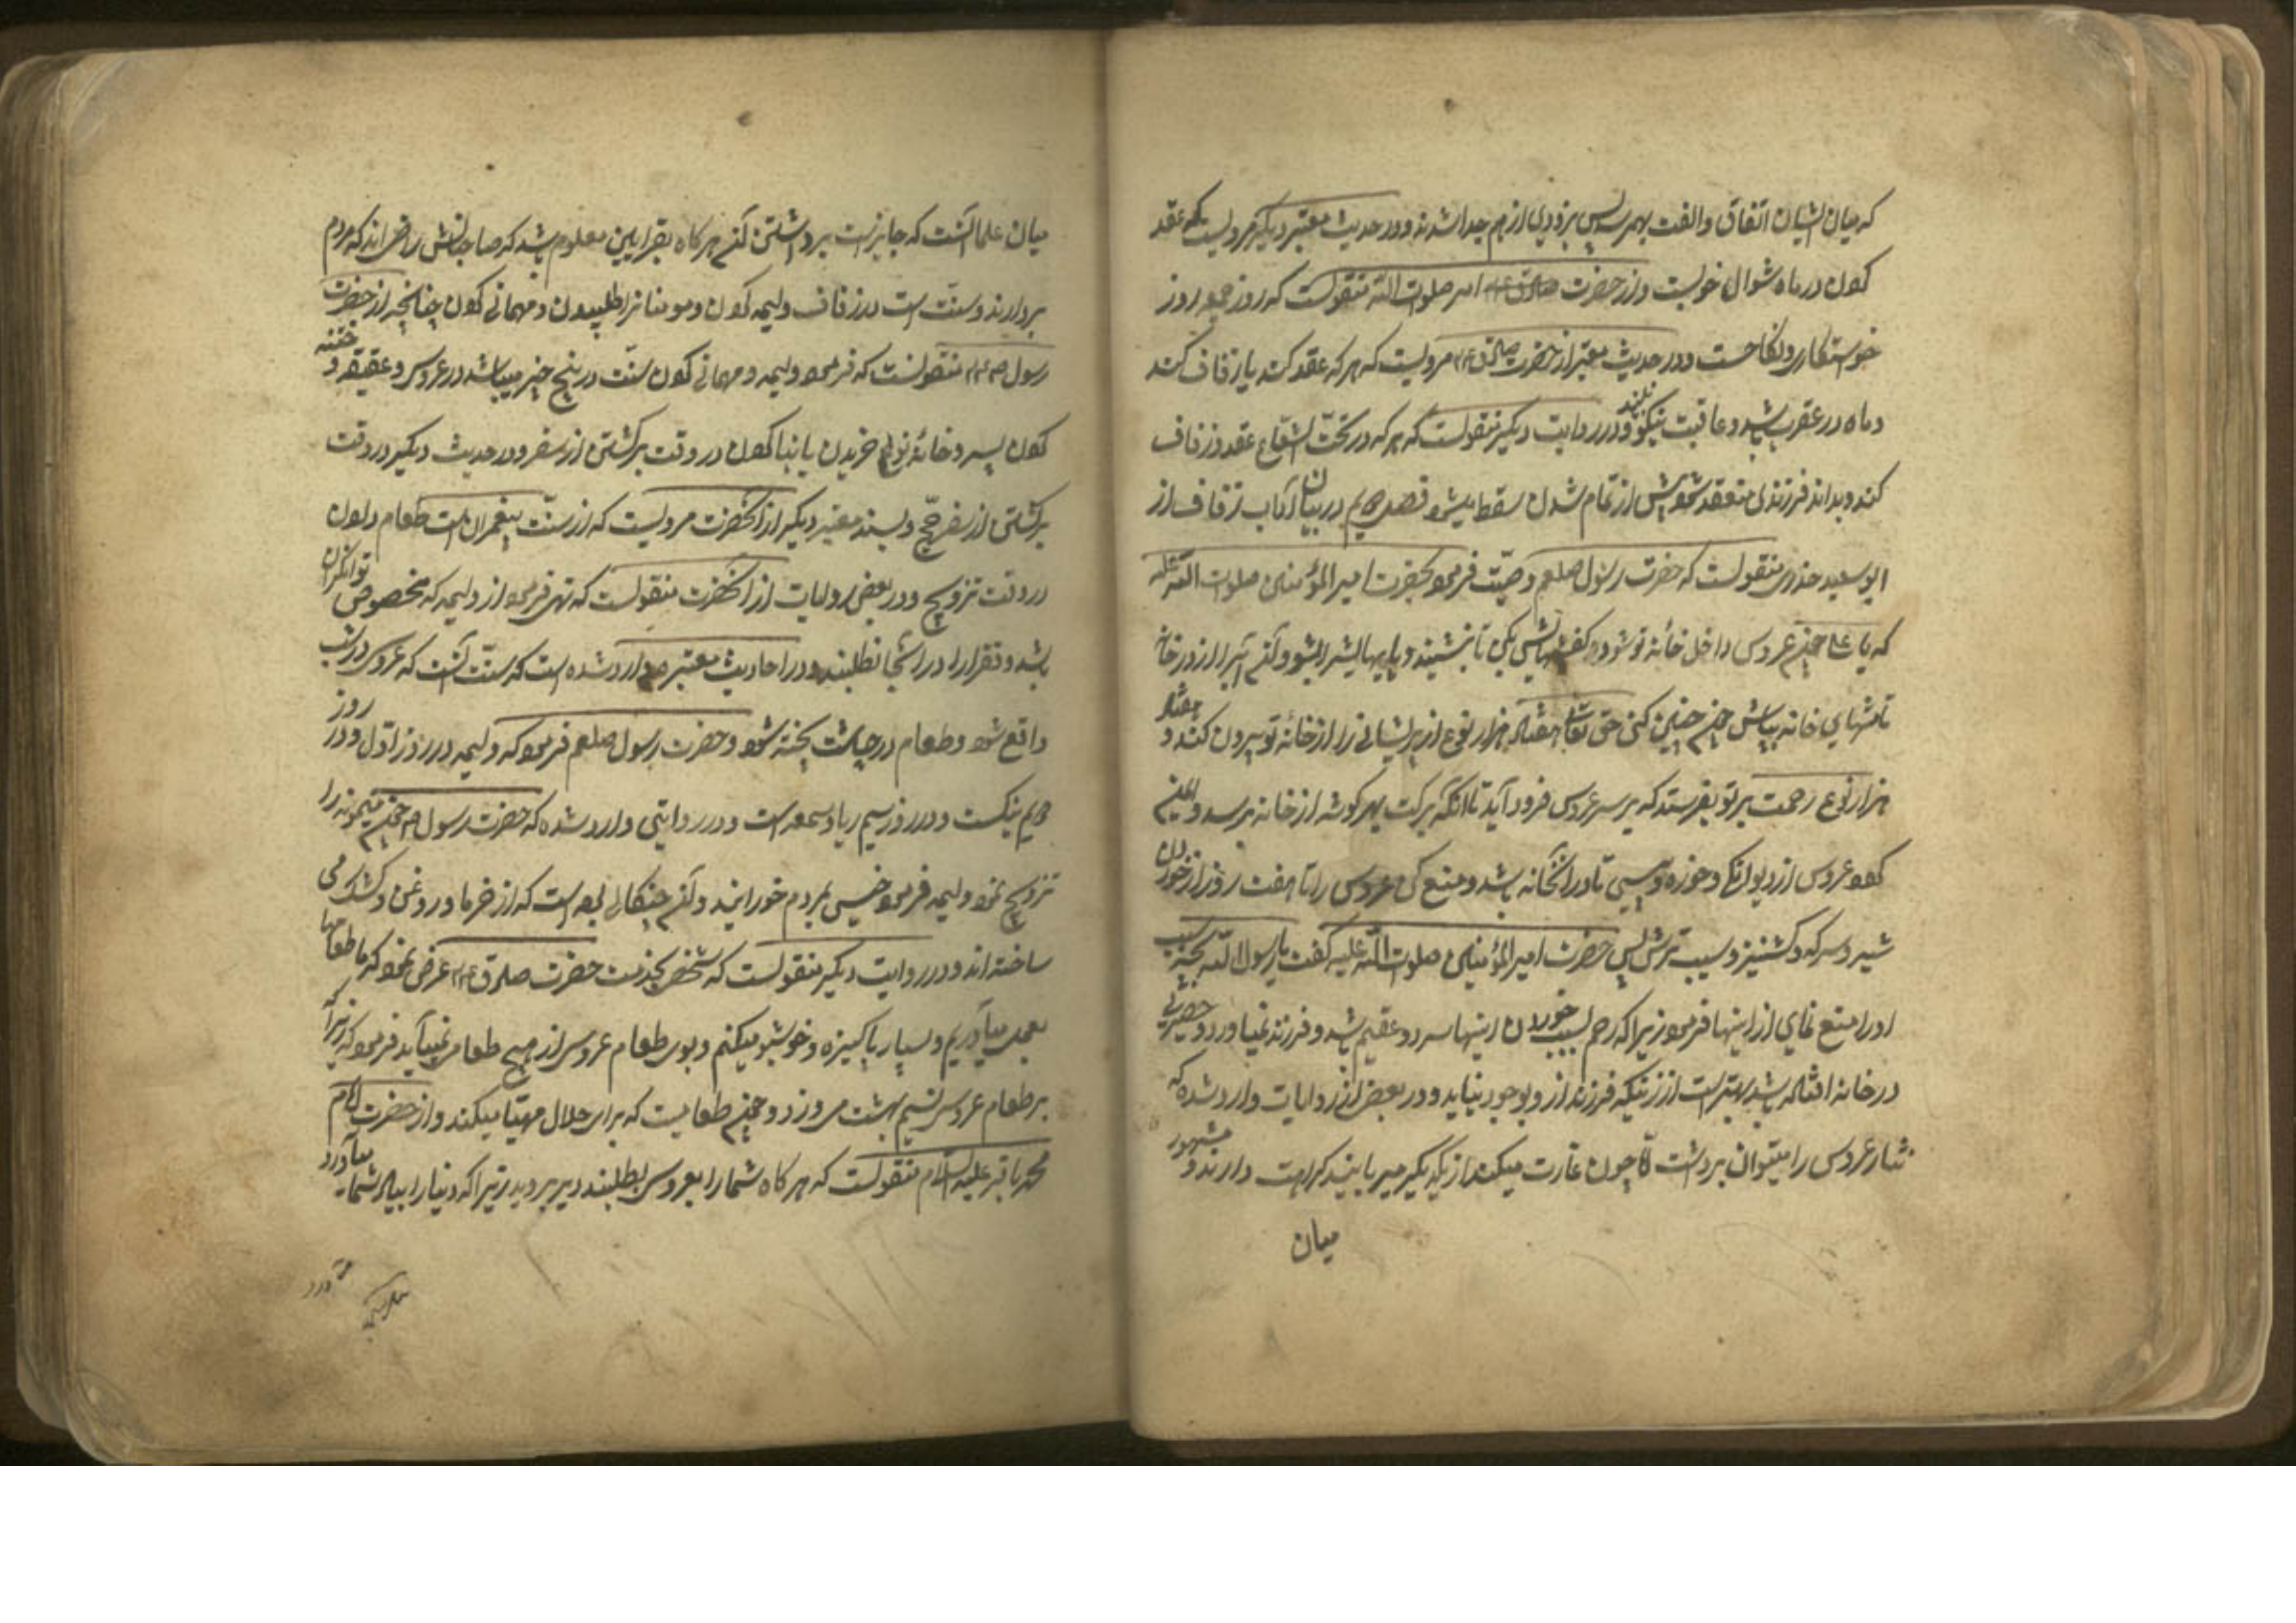 که میان ایشان اتفاق و الفت بهم نرسد پس بزودی از هم جدا شدند و در حدیث معتبر دیگر مرویست که عقد
کردن در ماه شوال خوبست و از حضرت صادق امیر صلوات الله منقولست که روز جمعه روز
خواستکاری و نکاحست و در حدیث معتبر از حضرت صادق مرویست که هر که عقد کند یا زفاف کند
و ماه در عقرب باشد عاقبت نیکو نبیند و در روایت دیگر منقولست که هر که در تحت الشعاع عقد و زفاف
کند بداند فرزندی منعقد شود پیش از تمام شدن سقط میشود فصل در بیان آداب زفاف از
ابو سعید خدری منقولست که حضرت رسول صلعم وصیّت فرمود بحضرت امیر المؤمنین صلوات الله علیه
که یا علی چون عروس داخل خانهٔ تو شود کفشهایش بکن تا بنشیند و پایهایش را بشو و آن آب را از در خانه
تا منتهای خانه بپاش چون چنین کنی حق تعالی هفتاد هزار نوع از پریشانی را از خانهٔ تو بیرون کند و هفتاد
هزار نوع رحمت بر تو بفرستد که بر سر عروس فرود آید تا آنکه برکت بهر گوشه از خانه برسد و ایمن
گردد عروس از دیوانکی و خوره و پیسی تا در آنخانه باشد و منع کن عروس را تا هفت روز از خوردن
شیر و سرکه و کشنیز و سیب ترش پس حضرت امیر المؤمنین صلوات الله علیه گفت یا رسول الله بچه سبب
او را منع نمایم از اینها فرمود زیرا که رحم بسبب خوردن اینها سرد و عقیم میشود و فرزند نمیاورد و حصیری
در خانه افتاده باشد بهتر است از زنیکه فرزند از او بوجود نیاید و در بعض از روایات وارد شده که
نثار عروس را میتوان برداشت امّا چون غارت میکنند از یکدیگر میربایند کراهت دارند و مشهور
میان
میان علما آنست که جایز است برداشتن آن هر کاه بقراین معلوم باشد که صاحبانش راضی اند که مردم
بردارند و سنّت است در زفاف ولیمه کردن و مومنانرا طلبیدن و مهمانی کردن چنانچه از حضرت
رسول منقولست که فرمود ولیمه و مهمانی کردن سنّت در پنج چیز میباشد در عروسی و عقیقه و ختنه
کردن پسر و خانهٔ نو خریدن یا بنا کردن در وقت برگشتن از سفر و در حدیث دیگر در وقت
برگشتن از سفر حجّ و بسند معتبر دیگر از آنحضرت مرویست که از سنّت پیغمبران است طعام دادن
در وقت تزویج و در بعض روایات از آنحضرت منقولست که نهی فرمود از ولیمه که مخصوص توانگران
باشد و فقرا را در آنجا نطلبند و در احادیث معتبره وارد شده است که سنّت آنست که عروسی در شب
واقع شود و طعام در چاشت پخته شود و حضرت رسول صلعم فرمود که ولیمه در روز اوّل و در روز
دویم نیکست و در روز سیم ریا و سمعه است و در روایتی وارد شده که حضرت رسول چون میمونه را
تزویج نمود ولیمه فرمود خیسی بمردم خورانید و آن چنکالی بوده است که از خرما و روغن و کشک می
ساخته اند و در روایت دیگر منقولست که شخصی بخدمت حضرت صادق عرض نمود که ما طعامها
بعمل میاوریم و بسیار پاکیزه و خوشبو میکنیم و بوی طعام عروسی از هیچ طعام نمیآید فرمود که زیرا
بر طعام عروسی نسیم بهشت می وزد و چون طعامیست که برای حلال مهیّا میکنند و از حضرت امام
محمد باقر علیه السلام منقولست که هر کاه شما را بعروسی بطلبند دیر بروید زیرا که دنیا را بیاد شما میآورد